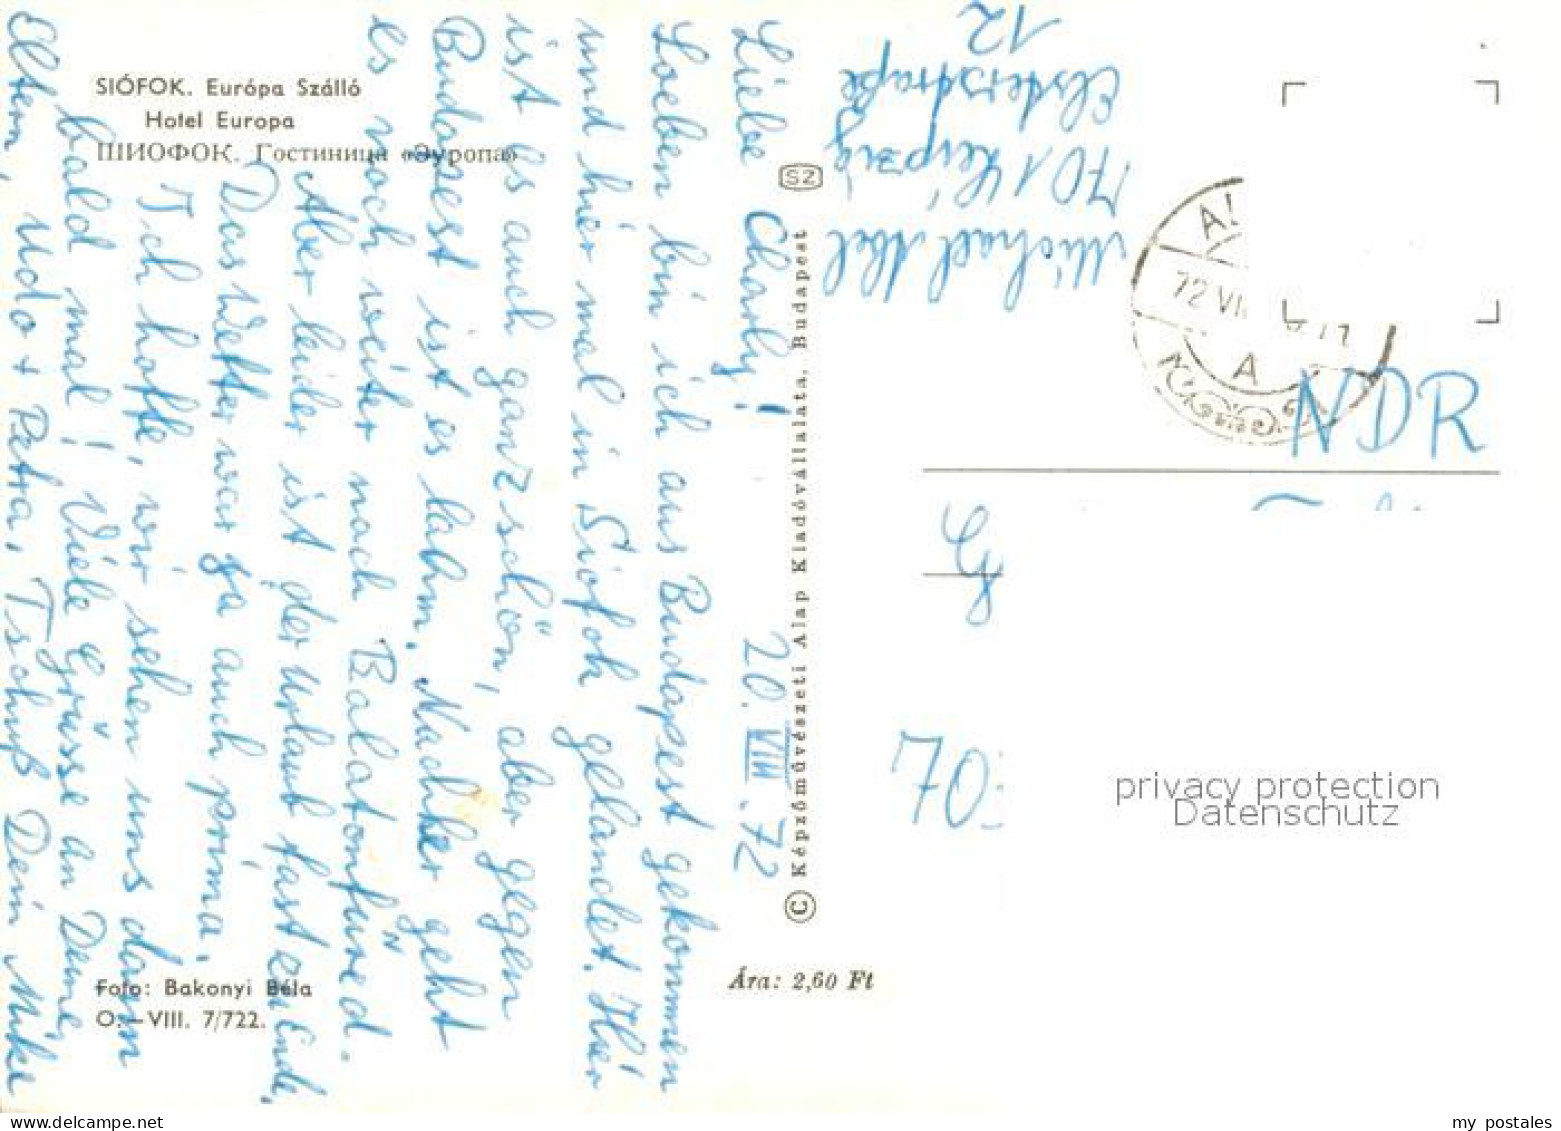 SIÓFOK. Európa Szálló
Hotel Europa
ШИОФОК. Гостиница «Эуропа»
Liebe Charly!
20. VIII. 72
Soeben bin ich aus Budapest gekommen
und hier mal in Siofok gelandet. Hier
ist es auch ganz schön, aber gegen
Budapest ist es lahm. Nachher geht
es noch weiter nach Balatonfüred.
Aber leider ist der Urlaub fast zu Ende.
Das Wetter war ja auch prima.
Ich hoffe, wir sehen uns dann
bald mal! Viele Grüsse an Deine
Eltern, Udo + Petra, Tschüß Dein Mike
Foto: Bakonyi Béla
O.–VIII. 7/722.
SZ
© Képzőművészeti Alap Kiadóvállalata, Budapest
Ára: 2,60 Ft
Michael Abel
701 Leipzig
Elsterstraße
12
72 VII
A
NDR
70
privacy protection
Datenschutz
my postales